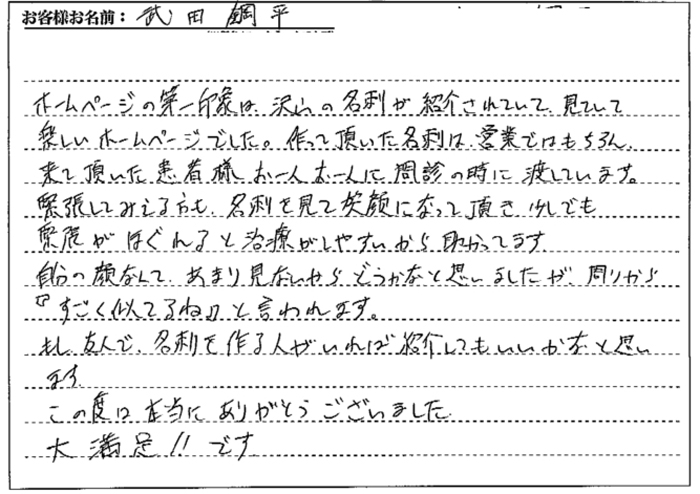 お客様お名前: 武田 鋼平
ホームページの第一印象は、沢山の名刺が紹介されていて、見ていて
楽しいホームページでした。作って頂いた名刺は、営業ではもちろん、
来て頂いた患者様お一人お一人に問診の時に渡しています。
緊張してみえる方も、名刺を見て笑顔になって頂き、少しでも
緊張がほぐれると治療がしやすいから助かってます
自分の顔なんて、あまり見ないからどうかなと思いましたが、周りから
『すごく似てるね』と言われます。
もし、友人で、名刺を作る人がいれば紹介してもいいかなと思い
ます
この度は本当にありがとうございました
大満足!!です